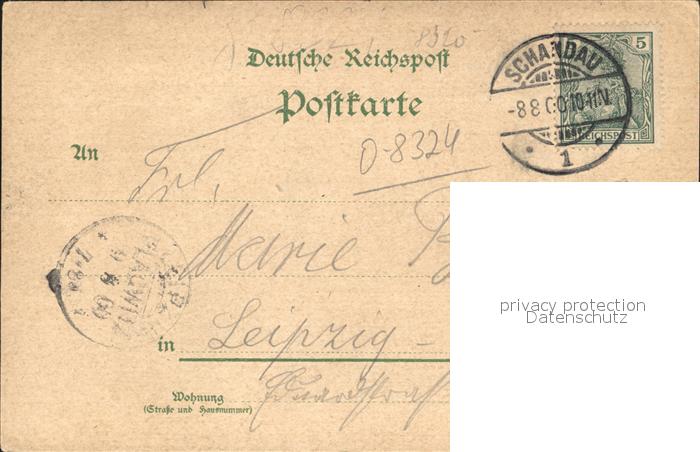 8320
Deutsche Reichspost
Postkarte
SCHANDAU
-8 8 00 10-11V.
1
5
REICHSPOST
O-8324
An Frl.
Marie
LEIPZ
PLAGWITZ
9 8 00
in Leipzig-
Wohnung
(Straße und Hausnummer)
privacy protection
Datenschutz